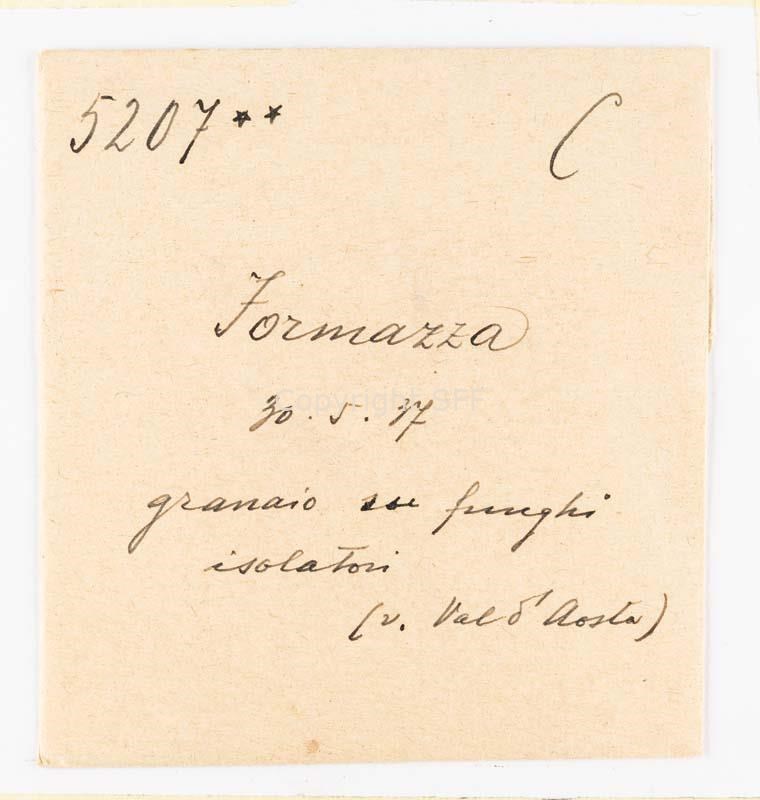 5207** C
Formazza
30. 5. 37
granaio su funghi
isolatori
(v. Val d'Aosta)
copyright SFF